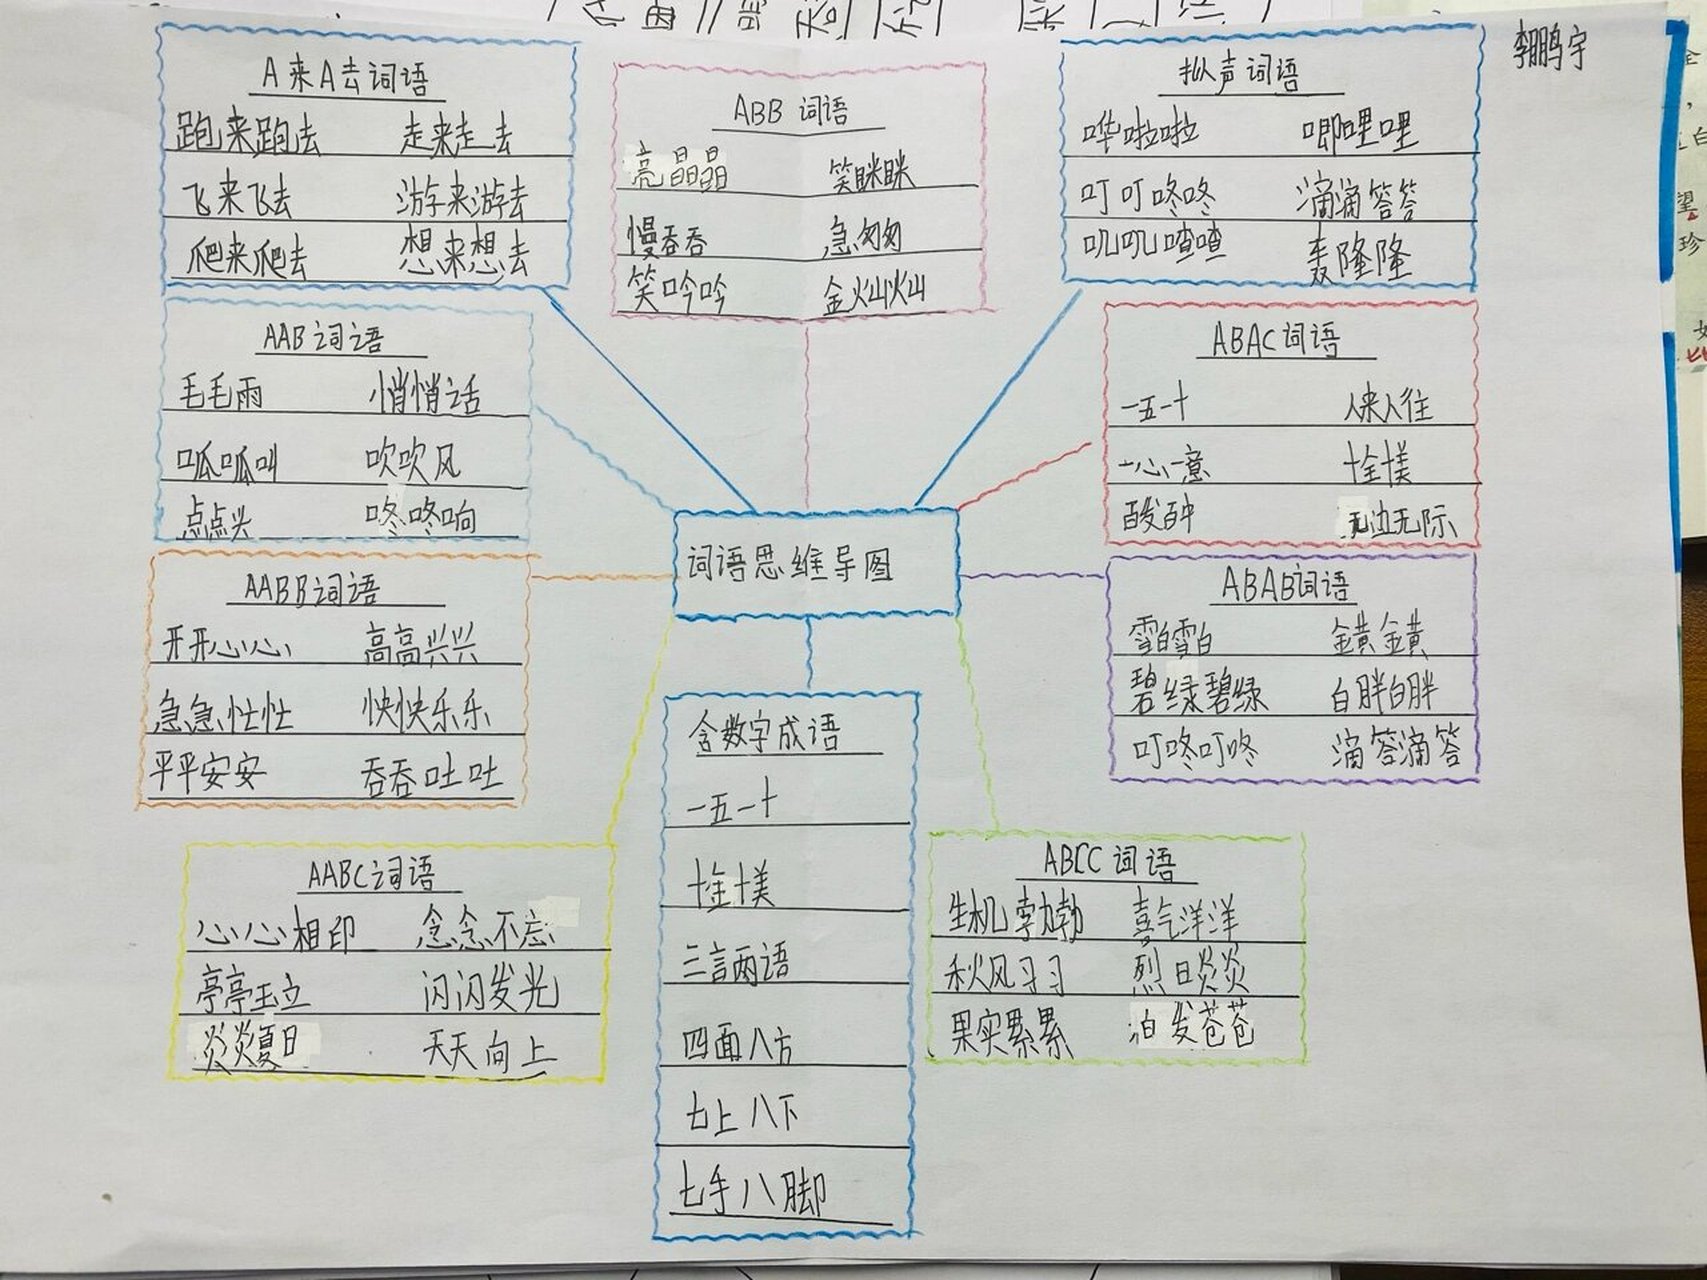 李鹏宇
A来A去词语
跑来跑去 走来走去
飞来飞去 游来游去
爬来爬去 想来想去
ABB 词语
亮晶晶 笑眯眯
慢吞吞 急匆匆
笑吟吟 金灿灿
拟声词语
哗啦啦 唧哩哩
叮叮咚咚 滴滴答答
叽叽喳喳 轰隆隆
AAB词语
毛毛雨 悄悄话
呱呱叫 吹吹风
点点头 咚咚响
ABAC词语
一五一十 人来人往
一心一意 十全十美
百发百中 无边无际
词语思维导图
AABB词语
开开心心 高高兴兴
急急忙忙 快快乐乐
平平安安 吞吞吐吐
ABAB词语
雪白雪白 金黄金黄
碧绿碧绿 白胖白胖
叮咚叮咚 滴答滴答
AABC词语
心心相印 念念不忘
亭亭玉立 闪闪发光
炎炎夏日 天天向上
含数字成语
一五一十
十全十美
三言两语
四面八方
七上八下
七手八脚
ABCC词语
生机勃勃 喜气洋洋
秋风习习 烈日炎炎
果实累累 白发苍苍